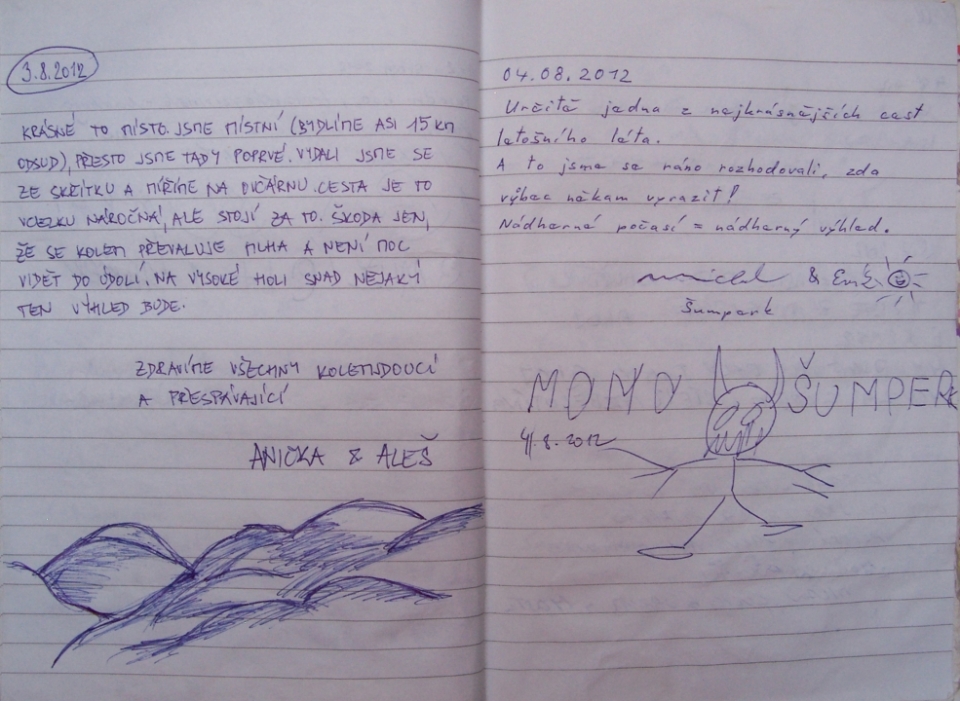 3.8.2012
KRÁSNÉ TO MÍSTO. JSME MÍSTNÍ (BYDLÍME ASI 15 KM
ODSUD), PŘESTO JSME TADY POPRVÉ. VYDALI JSME SE
ZE SKŘÍTKU A MÍŘÍME NA OVČÁRNU. CESTA JE TO
VCELKU NÁROČNÁ, ALE STOJÍ ZA TO. ŠKODA JEN,
ŽE SE KOLEM PŘEVALUJE MLHA A NENÍ MOC
VIDĚT DO ÚDOLÍ. NA VYSOKÉ HOLI SNAD NEJAKÝ
TEN VÝHLED BUDE.
ZDRAVÍME VŠECHNY KOLEMJDOUCÍ
A PŘESPÁVAJÍCÍ
ANIČKA & ALEŠ
04.08.2012
Určitě jedna z nejkrásnějších cest
letošního léta.
A to jsme se ráno rozhodovali, zda
vůbec někam vyrazit!
Nádherné počasí = nádherný výhled.
&
Šumperk
MOMO ŠUMPERK
4.8.2012